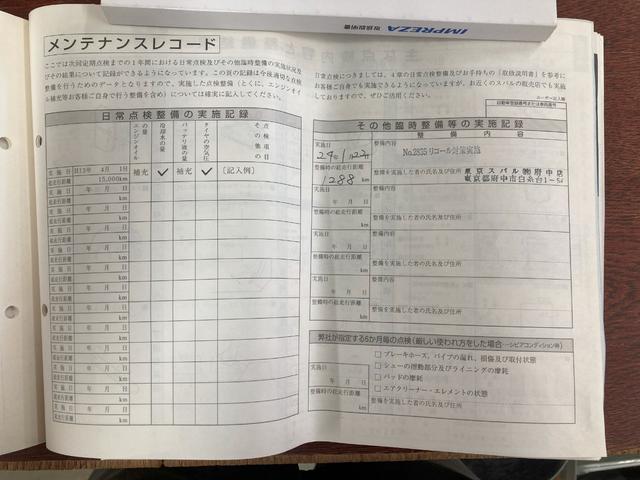 取扱説明書 IMPREZA
メンテナンスレコード
ここでは次回定期点検までの1年間における日常点検及びその他臨時整備の実施状況及
びその結果について記録ができるようになっています。この頁の記録は今後適切な点検
整備を行うためのデータとなりますので、実施した点検整備(とくに、エンジンオイ
ル補充等お客様ご自身で行う整備を含め)については確実に記入してください。
日常点検整備の実施記録
点検項目
エンジンオイルの量
冷却水の量
バッテリ液の量
タイヤの空気圧
その他の
実施日 H13年 4月 1日 補充 ✓ 補充 ✓ [記入例]
総走行距離 15,000km
実施日 年 月 日
総走行距離 km
実施日 年 月 日
総走行距離 km
実施日 年 月 日
総走行距離 km
実施日 年 月 日
総走行距離 km
実施日 年 月 日
総走行距離 km
実施日 年 月 日
総走行距離 km
実施日 年 月 日
総走行距離 km
実施日 年 月 日
総走行距離 km
実施日 年 月 日
総走行距離 km
実施日 年 月 日
総走行距離 km
実施日 年 月 日
総走行距離 km
日常点検につきましては、4章の日常点検整備及びお手持ちの「取扱説明書」を参考に
お客様ご自身でも実施できるようになっていますが、お近くのスバルの販売店でも実施
しておりますので、ぜひご活用ください。
ユーザー記入欄
自動車登録番号または車両番号
その他臨時整備等の実施記録
整備内容
実施日 整備内容
24年1月22日 No.2835 リコール対策実施
整備時の総走行距離 整備を実施した者の氏名及び住所 東京スバル㈱府中店
1288 km 東京都府中市白糸台1-54
実施日 整備内容
年 月 日
整備時の総走行距離 整備を実施した者の氏名及び住所
km
実施日 整備内容
年 月 日
整備時の総走行距離 整備を実施した者の氏名及び住所
km
実施日 整備内容
年 月 日
整備時の総走行距離 整備を実施した者の氏名及び住所
km
弊社が指定する6か月毎の点検(厳しい使われ方をした場合―シビアコンディション時)
□ ブレーキホース、パイプの漏れ、損傷及び取付状態
実施日 □ シューの摺動部分及びライニングの摩耗
年 月 日 □ パッドの摩耗
整備時の総走行距離 □ エアクリーナー・エレメントの状態
km 整備を実施した者の氏名及び住所